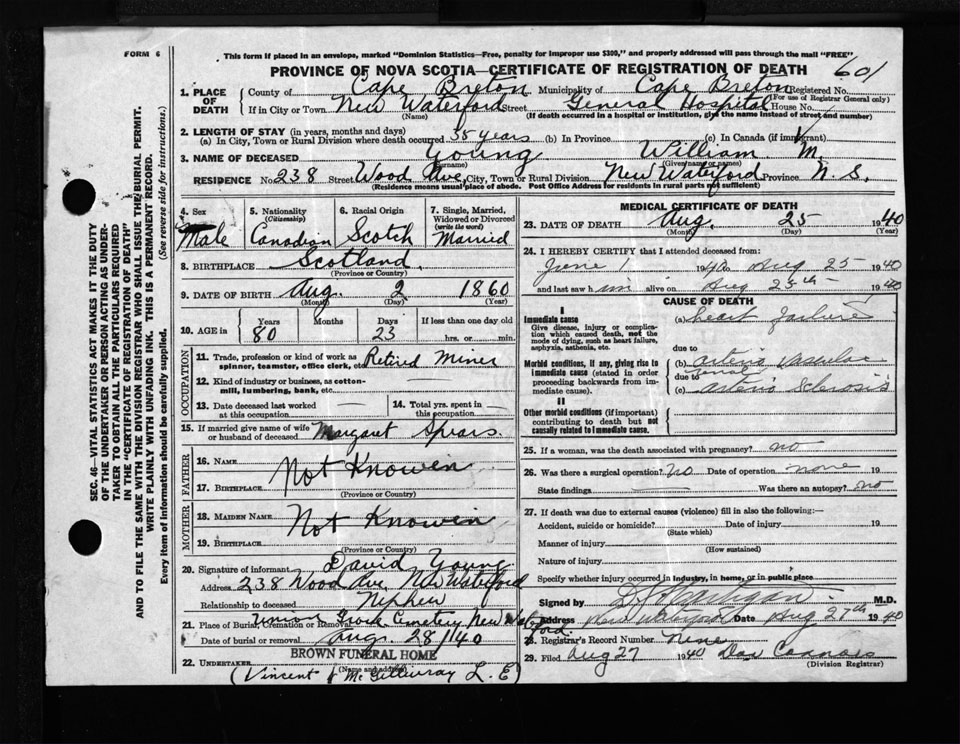 FORM 6
This form if placed in an envelope, marked "Dominion Statistics—Free, penalty for improper use $300," and properly addressed will pass through the mail "FREE"
PROVINCE OF NOVA SCOTIA—CERTIFICATE OF REGISTRATION OF DEATH 601
SEC. 46—VITAL STATISTICS ACT MAKES IT THE DUTY
OF THE UNDERTAKER OR PERSON ACTING AS UNDER-
TAKER TO OBTAIN ALL THE PARTICULARS REQUIRED
IN THE "CERTIFICATE OF REGISTRATION OF DEATH"
AND TO FILE THE SAME WITH THE DIVISION REGISTRAR WHO SHALL ISSUE THE BURIAL PERMIT.
WRITE PLAINLY WITH UNFADING INK. THIS IS A PERMANENT RECORD.
Every item of information should be carefully supplied. (See reverse side for instructions.)
1. PLACE OF DEATH County of Cape Breton Municipality of Cape Breton Registered No.
(For use of Registrar General only)
If in City or Town New Waterford Street General Hospital House No.
(Name) (If death occurred in a hospital or institution, give the name instead of street and number)
2. LENGTH OF STAY (in years, months and days)
(a) In City, Town or Rural Division where death occurred 35 years (b) In Province (c) In Canada (if immigrant)
3. NAME OF DECEASED Young William M.
(Surname) (Given name or names)
RESIDENCE No. 238 Street Wood Ave. City, Town or Rural Division New Waterford Province N. S.
(Residence means usual place of abode. Post Office Address for residents in rural parts not sufficient)
4. Sex
Male
5. Nationality
(Citizenship)
Canadian
6. Racial Origin
Scotch
7. Single, Married,
Widowed or Divorced
(write the word)
Married
8. BIRTHPLACE Scotland.
(Province or Country)
9. DATE OF BIRTH Aug. 2 1860
(Month) (Day) (Year)
10. AGE in Years Months Days If less than one day old
80 23 hrs. or min.
OCCUPATION
11. Trade, profession or kind of work as
spinner, teamster, office clerk, etc. Retired Miner
12. Kind of industry or business, as cotton-
mill, lumbering, bank, etc.
13. Date deceased last worked
at this occupation
14. Total yrs. spent in
this occupation
15. If married give name of wife
or husband of deceased Margaret Spears
FATHER
16. NAME
Not Knowen
17. BIRTHPLACE
(Province or Country)
MOTHER
18. MAIDEN NAME
Not Knowen
19. BIRTHPLACE
(Province or Country)
20. Signature of informant David Young
Address 238 Wood Ave New Waterford
Relationship to deceased Nephew
21. Place of Burial, Cremation or Removal Union Grove Cemetery New Waterford.
Date of burial or removal Aug. 28/40
BROWN FUNERAL HOME
22. UNDERTAKER
(Name and address)
(Vincent J McGillivray L. E)
MEDICAL CERTIFICATE OF DEATH
23. DATE OF DEATH Aug. 25 1940
(Month) (Day) (Year)
24. I HEREBY CERTIFY that I attended deceased from:
June 1 1940 to Aug 25 1940
and last saw him alive on Aug 25th 1940
CAUSE OF DEATH
I
Immediate cause
Give disease, injury or complica-
tion which caused death, not the
mode of dying, such as heart failure,
asphyxia, asthenia, etc.
(a) heart failure
due to
Morbid conditions, if any, giving rise to
immediate cause (stated in order
proceeding backwards from im-
mediate cause).
(b) arterio vascular
due to
(c) arterio sclerosis
II
Other morbid conditions (if important)
contributing to death but not
causally related to immediate cause.
25. If a woman, was the death associated with pregnancy? no
26. Was there a surgical operation? no Date of operation none 19
State findings Was there an autopsy? no
27. If death was due to external causes (violence) fill in also the following:—
Accident, suicide or homicide? Date of injury 19
(State which)
Manner of injury
(How sustained)
Nature of injury
Specify whether injury occurred in industry, in home, or in public place
Signed by M.D.
Address New Waterford Date Aug 27th 1940
28. Registrar's Record Number Nine
29. Filed Aug 27 1940 Dan Connors
(Division Registrar)